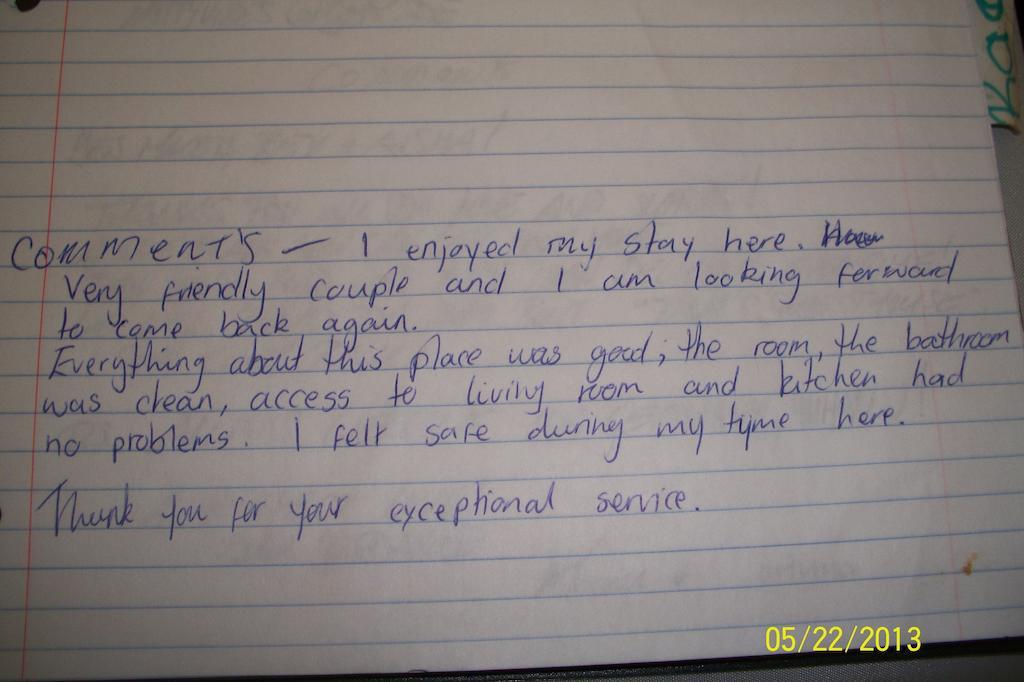 Comments – I enjoyed my stay here.
Very friendly couple and I am looking forward
to come back again.
Everything about this place was good; the room, the bathroom
was clean, access to living room and kitchen had
no problems. I felt safe during my tyme here.
Thank you for your exceptional service.
05/22/2013